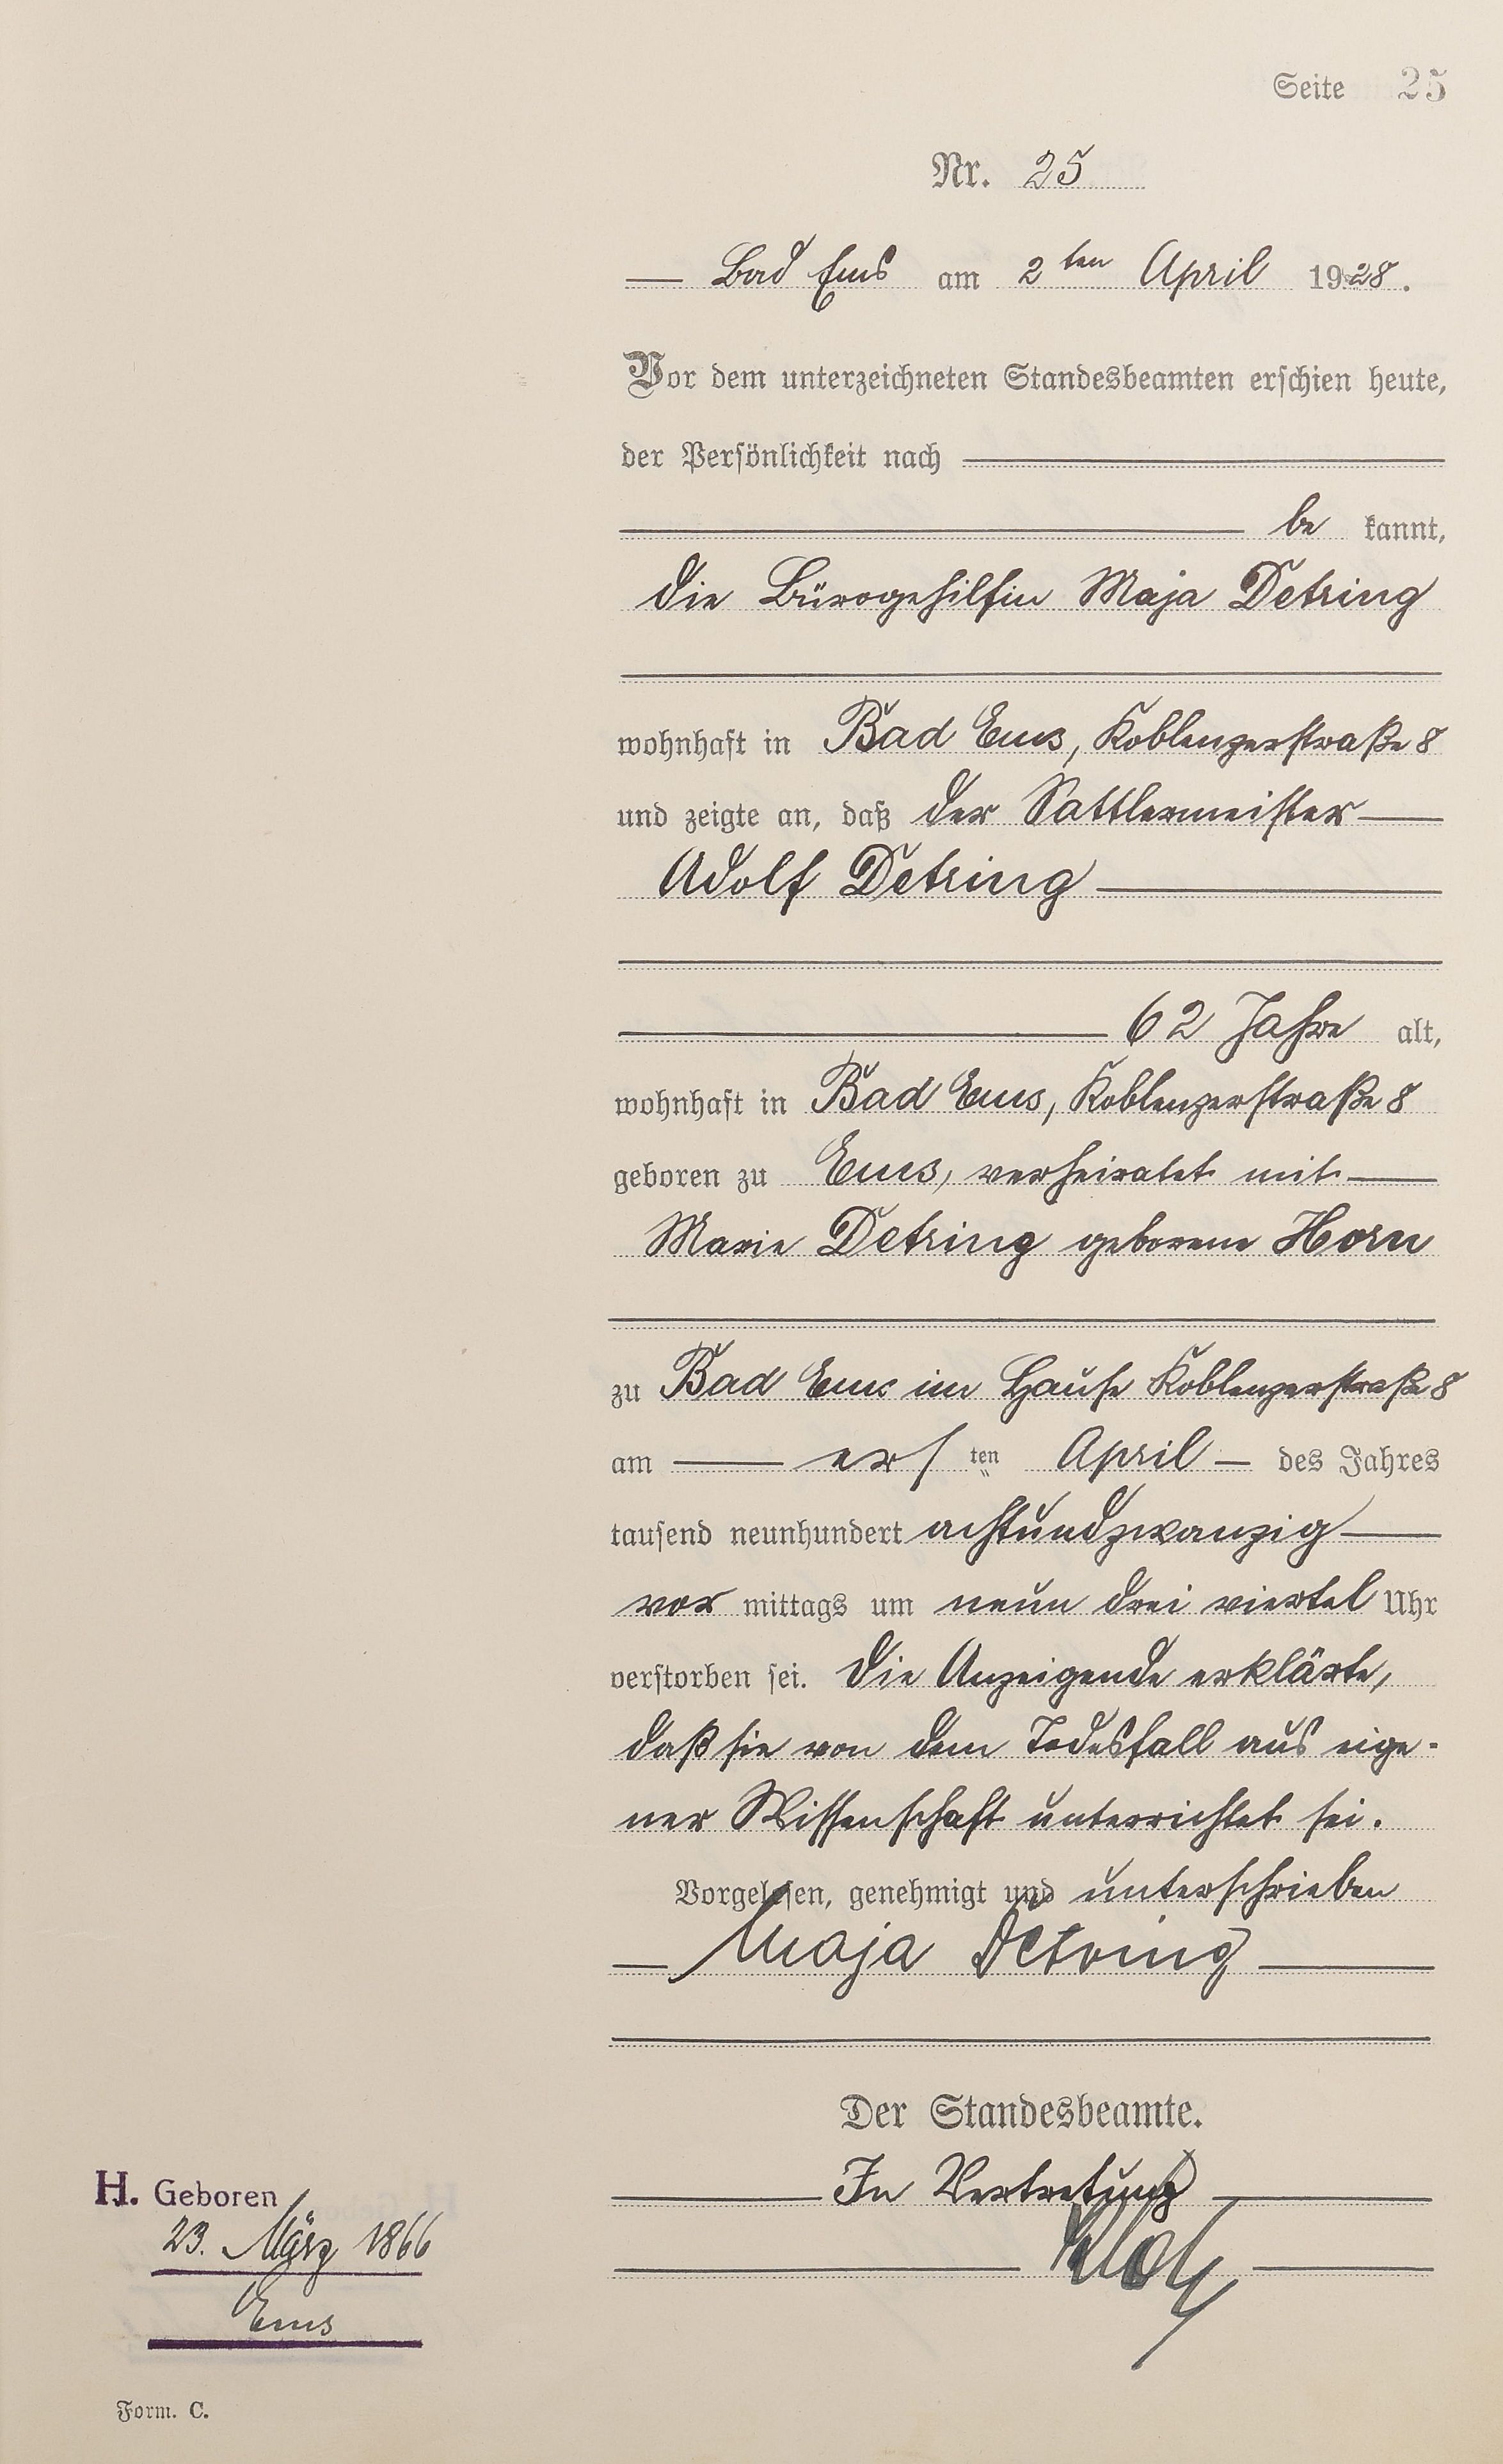 Seite 25
Nr. 25
Bad Ems am 2ten April 1928.
Vor dem unterzeichneten Standesbeamten erschien heute,
der Persönlichkeit nach
be kannt,
die Bürogehilfin Maja Detring
wohnhaft in Bad Ems, Koblenzerstraße 8
und zeigte an, daß der Sattlermeister
Adolf Detring
62 Jahre alt,
wohnhaft in Bad Ems, Koblenzerstraße 8
geboren zu Ems, verheiratet mit
Marie Detring geborene Horn
zu Bad Ems im Hause Koblenzerstraße 8
am ersten April des Jahres
tausend neunhundert achtundzwanzig
vor mittags um neun drei viertel Uhr
verstorben sei. Die Anzeigende erklärte,
daß sie von dem Todesfall aus eige-
ner Wissenschaft unterrichtet sei.
Vorgelesen, genehmigt und unterschrieben
Maja Detring
Der Standesbeamte.
In Vertretung
H. Geboren
23. März 1866
Ems
Form. C.